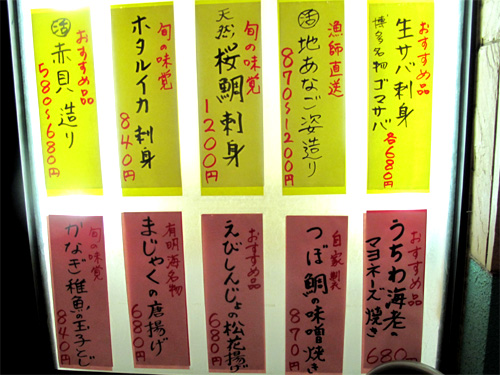 おすすめ品
生サバ刺身
博多名物ゴマサバ
各680円
漁師直送
活地あなご姿造り
870〜1200円
旬の味覚
天然桜鯛刺身
1200円
旬の味覚
ホタルイカ刺身
840円
おすすめ品
活赤貝造り
580〜680円
おすすめ品
うちわ海老の
マヨネーズ焼き
680
自家製
つぼ鯛の味噌焼き
870円
おすすめ品
えびしんじょの松花揚げ
680円
有明海名物
まじゃくの唐揚げ
680円
旬の味覚
かなぎ稚魚の玉子とじ
840円